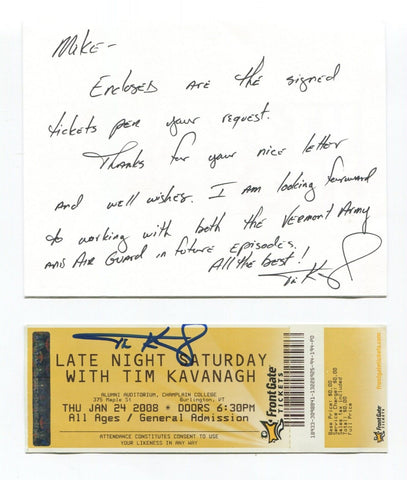 Mike-
Enclosed are the signed
tickets per your request.
Thanks for your nice letter
and well wishes. I am looking forward
to working with both the Vermont Army
and Air Guard in future episodes.
All the best!
Tim K
Tim K
LATE NIGHT SATURDAY
WITH TIM KAVANAGH
ALUMNI AUDITORIUM, CHAMPLAIN COLLEGE
375 Maple St Burlington, VT
THU JAN 24 2008 * DOORS 6:30PM
All Ages / General Admission
ATTENDANCE CONSTITUTES CONSENT TO USE
YOUR LIKENESS IN ANY WAY
FrontGate
TICKETS
Base Price: $0.00
Full Price: $0.00
FrontGate
TICKETS
frontgatetickets.com